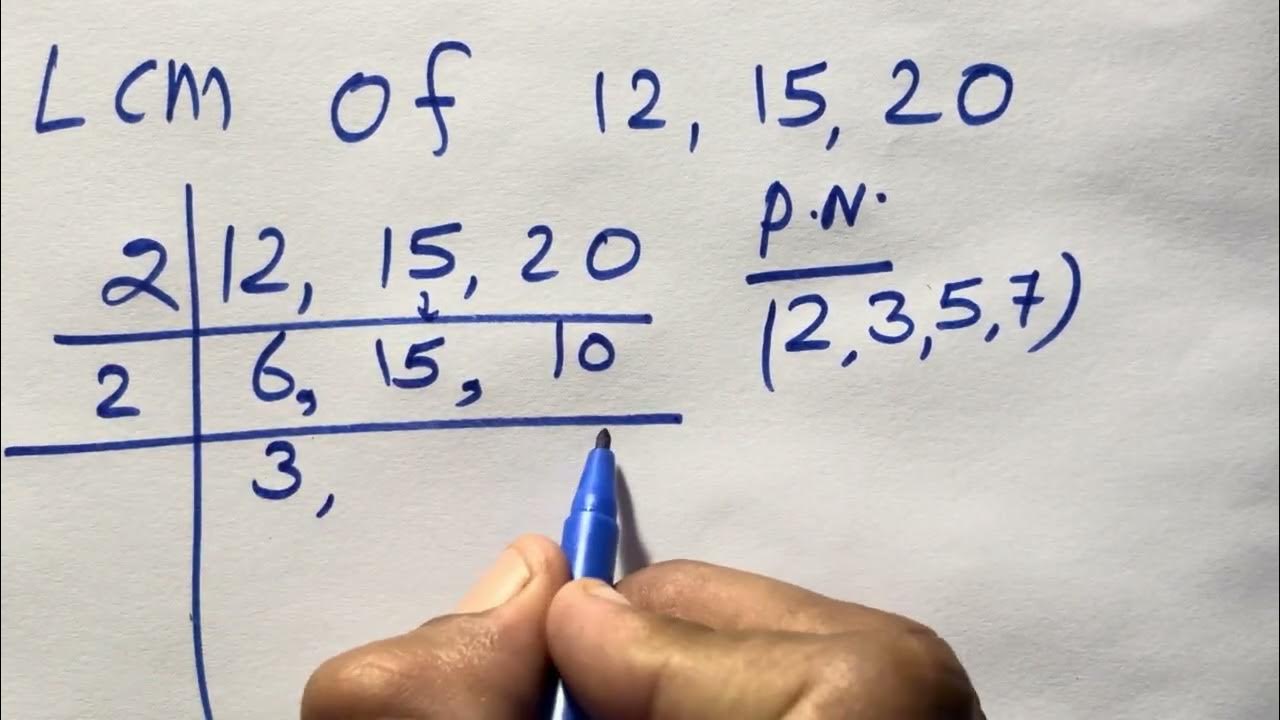 Lcm of 12, 15, 20
P.N.
2 12, 15, 20
(2, 3, 5, 7)
2 6, 15, 10
3,